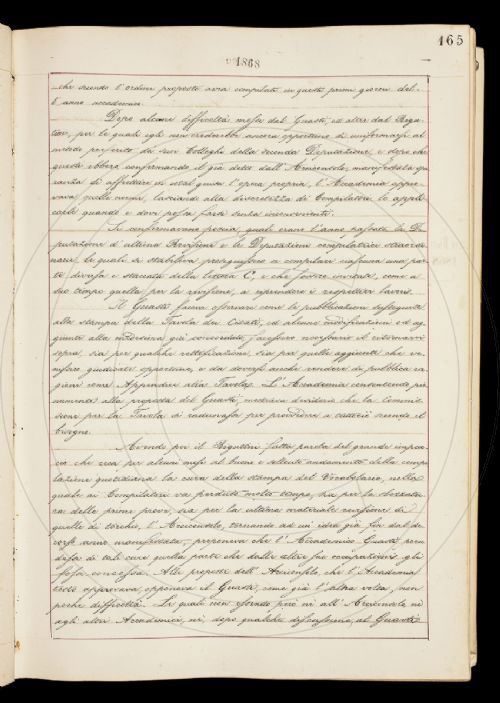 165
1868
che secondo l'ordine proposto avea compilate in questi primi giorni del-
l'anno accademico.
Dopo alcune difficoltà mosse dal Guasti ed altre dal Bigaz-
per le quali egli non credeva ancora opportuno di uniformarsi al
metodo preferito da suoi Colleghi della seconda Deputazione, e dopo che
questi ebbero confermando il già detto dall'Arcivescovo, manifestata
di affrettare in tal guisa l'opera propria, l'Accademia appro-
vava quelle norme, lasciando alla discretezza de' Compilatori lo appli-
carle quando e dove possa farsi senza inconvenienti.
Si confermarono poscia, quali erano l'anno passato la De-
putazione d'ultima Revisione e le Deputazioni compilatrici straordi-
narie, le quali si stabiliva proseguissero a compilare ciascuna una par-
te divisa e staccata della lettera C, e che fossero invitate, come a
suo tempo quella per la revisione, a riprendere i respettivi lavori.
Il Guasti faceva osservare come la pubblicazione
alla stampa della Tavola dei Citati, ed alcune modificazioni ed ag-
giunte alla medesima già succedute, facessero necessario il ritornarvi
sopra, sia per qualche rettificazione, sia per quelle aggiunte che ve-
nissero giudicate opportune, e da doversi anche rendere di pubblica ra-
gione come Appendice alla Tavola. L'Accademia consentendo pie-
namente alla proposta del Guasti, mostrava desiderio che la Commis-
sione per la Tavola si radunasse per provvedere a tutto ciò secondo il
bisogno.
Avendo poi il Bigazzi fatta parola del grande impac-
cio che reca per alcuni mesi al buono e sollecito andamento della compi-
lazione quotidiana la cura della stampa del Vocabolario, nella
quale i Compilatori va perduto molto tempo, sia per la
delle prime prove, sia per la ultima materiale revisione di
quelle di torchio, l'Arcivescovo, tornando ad un'idea già fin dal de-
corso anno manifestata, proponeva che l'Accademico Guasti pren-
desse di tali cure quella parte che dalle altre sue occupazioni gli
fosse concessa. Alla proposta dell'Arcivescovo, che l'Accademia
approvava opponeva il Guasti, come già l'altra volta, non
poche difficoltà. Le quali non essendo però nè all'Arcivescovo nè
agli altri Accademici, nè, dopo qualche discussione, al Guasti